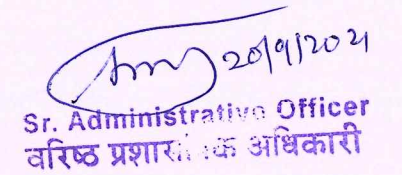 20/9/2021
Sr. Administrative Officer
वरिष्ठ प्रशासनिक अधिकारी